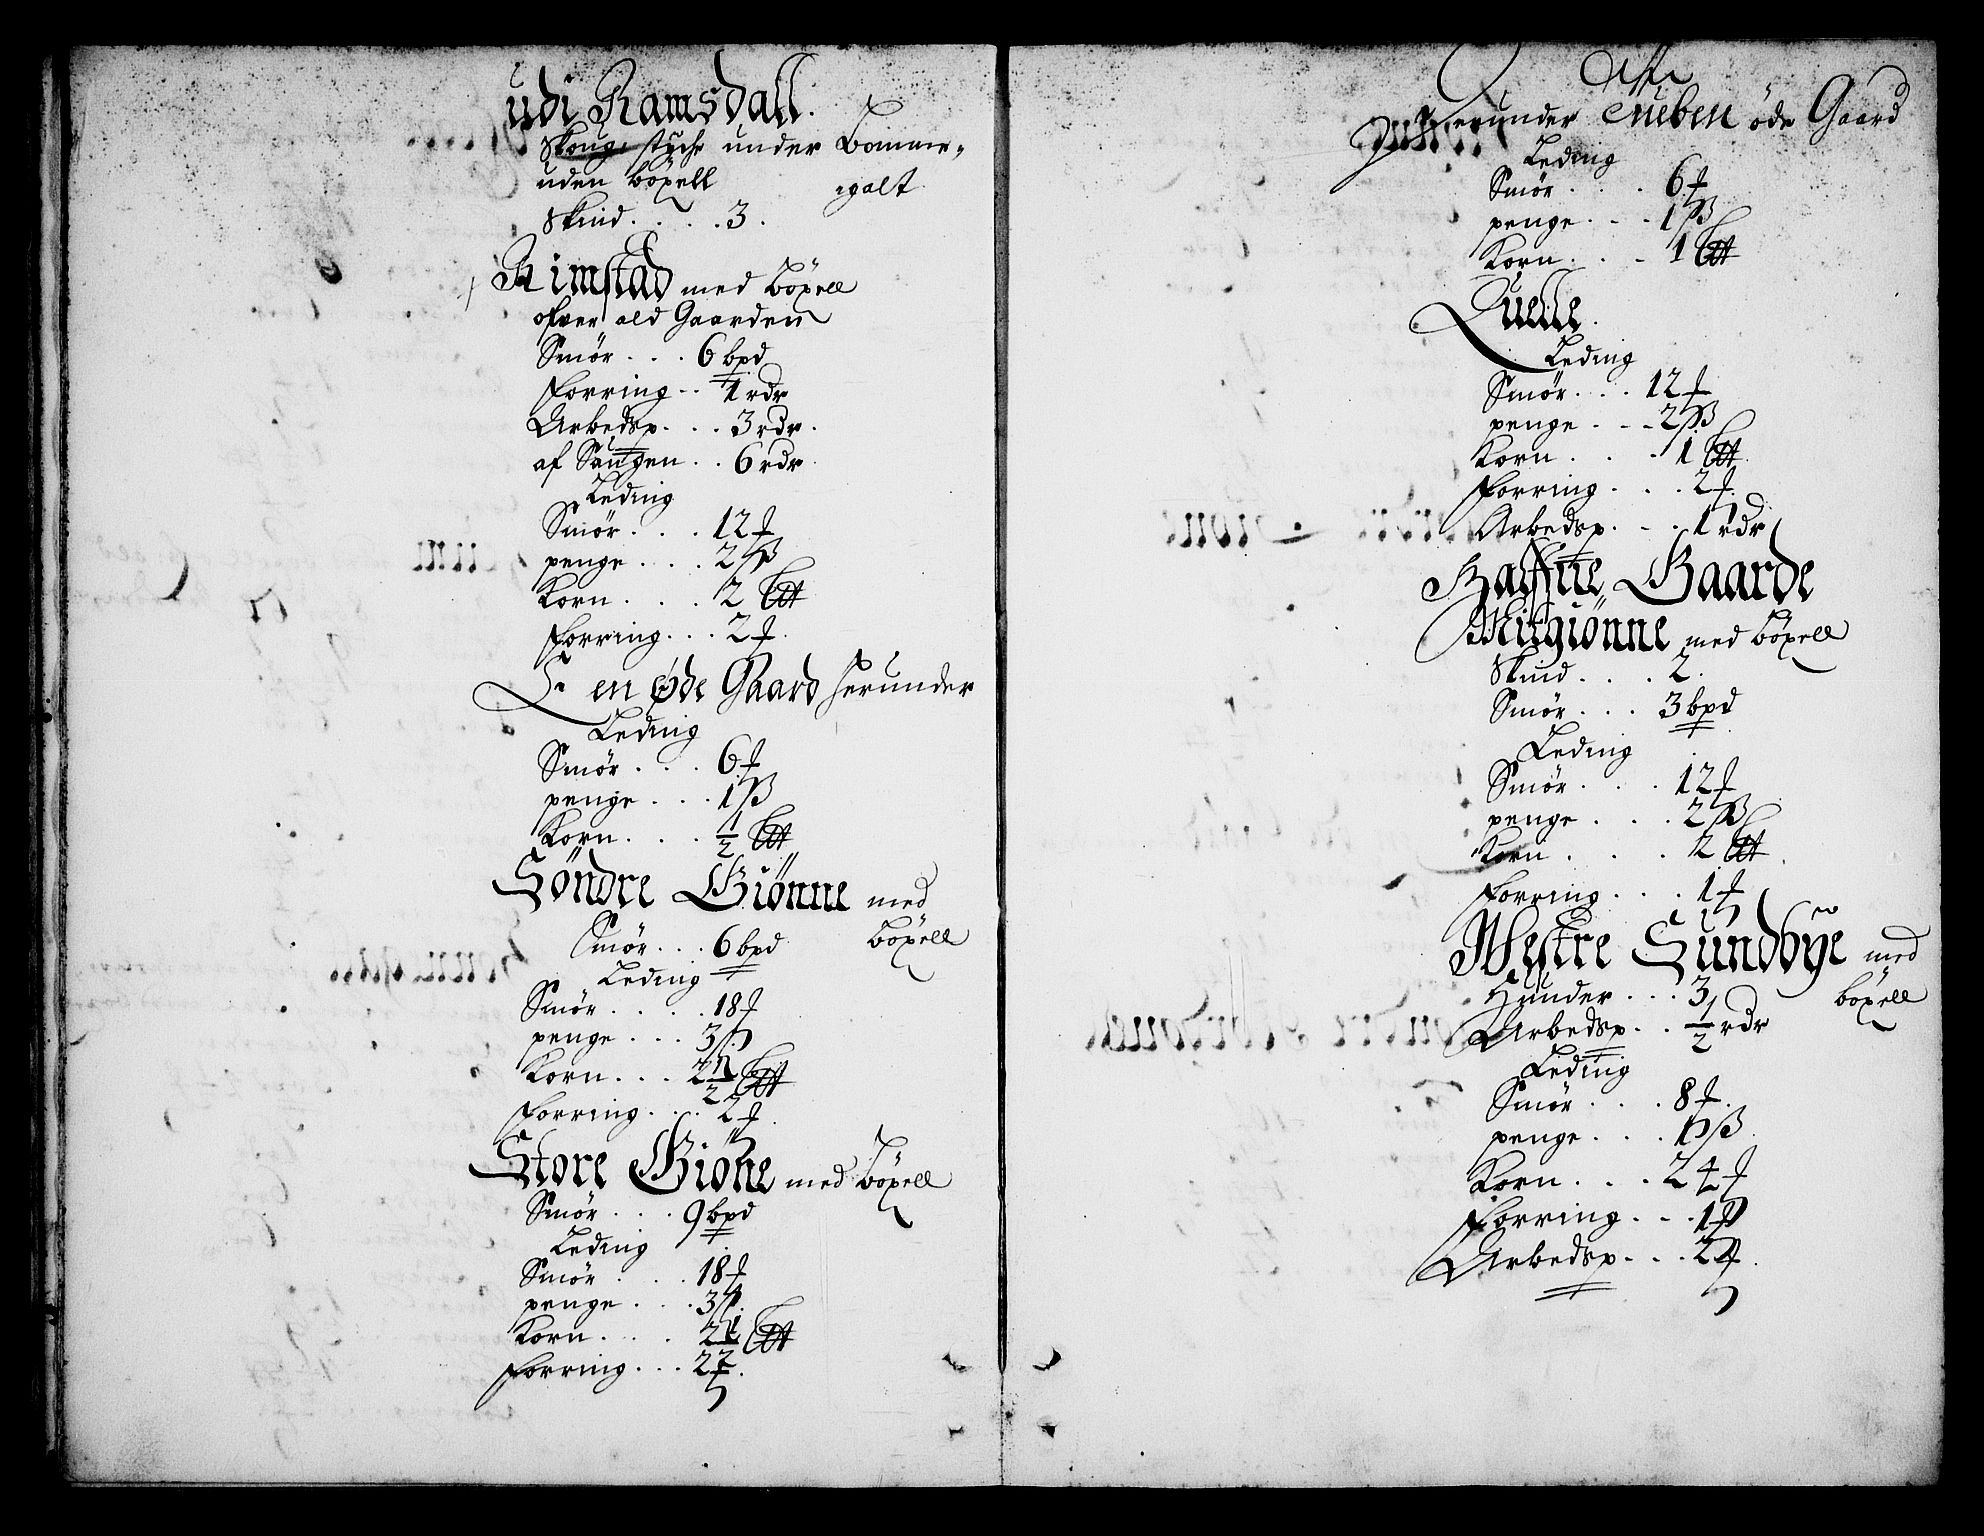 udi Ramsdall.
Skoug stÿche under Bomme-
uden böxell galt
Skind . . . . 3.
Rimstad med Böxell
ofver ald Gaarden
Smör . . . 6 bpd
Forring . . 1 rdr
Arbedsp . . . 3 rdr.
af Saugen . . 6 rdr.
Leding
Smör . . . . 12 ℔
penge . . . . 2 ß
Korn . . . . 2
Forring . . . 2 ℔.
en Øde Gaard herunder
Leding
Smör . . . 6 ℔
penge . . . 1 ß
Korn . . . . 1/2
Söndre Giönne med
Smör . . . 6 bpd Böxell
Leding
Smör . . . . . 18 ℔
penge . . . 3 ß
Korn . . . 2 1/2
Forring . . . . 2 ℔.
Store Giöne med Böxell
Smör . . . . 9 bpd
Leding
Smör . . . . 18 ℔
penge . . . . 3 ß.
Korn . . . . 2 1/2
Forring . . . 2 ℔.
herunder öde Gaard
Leding
Smör . . . . 6 ℔
penge . . . 1 ß
Korn . . . 1
Quelle.
Leding
Smör . . . . 12 ℔
penge . . . 2 ß
Korn . . . . 1
Forring . . . . 2 ℔.
Arbedsp . . . 1 rdr
Halfue Gaarde
Mitgiönne med Böxell
Skind . . . . 2.
Smör . . . 3 bpd
Leding
Smör . . . . 12 ℔
penge . . . . 2 ß
Korn . . . . 2
Forring . . . . 1 ℔
Westre Sundbÿe med
Hunder . . . 3 böxell
Arbedsp . . 1/2 rdr
Leding
Smör . . . . 8 ℔.
penge . . . . 1 ß.
Korn . . . . 2
Forring . . . 1
Arbedsp . . . 2